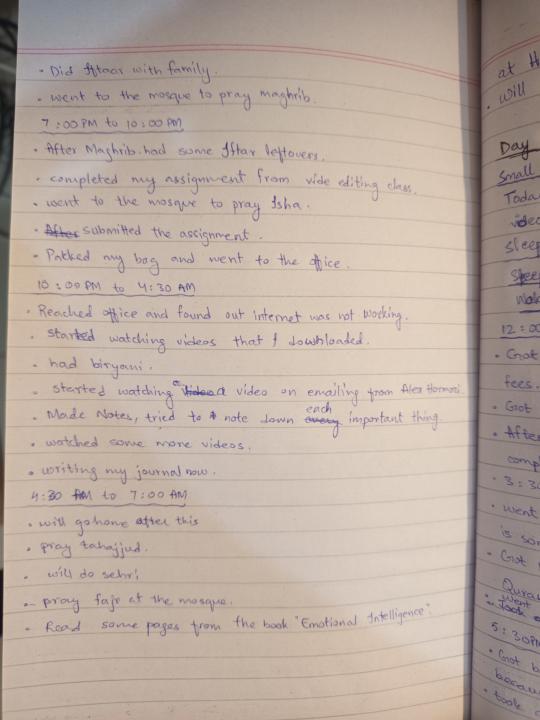 · Did Iftaar with family.
· went to the mosque to pray maghrib.
7:00 PM to 10:00 PM
· After Maghrib. had some Iftar leftovers.
· completed my assignment from vide editing class.
· went to the mosque to pray Isha.
· After submitted the assignment.
· Patked my bag and went to the office.
10:00 PM to 4:30 AM
· Reached office and found out internet was not working.
· started watching videos that I downloaded.
· had biryani.
· started watching a video on emailing from Alex Hormozi.
· Made Notes, tried to note down every each important thing.
· watched some more videos.
· writing my journal now.
4:30 AM to 7:00 AM
· will go home after this
· pray tahajjud.
· will do sehri
· pray fajr at the mosque.
· Read some pages from the book "Emotional Intelligence".
at
· will
Day
Small
Toda
video
sleep
12:00
· Got
fees.
· Got
· After
comp
· 3:30
· went
is so
· Got
Quran
· went
took
5:30PM
· Got b
becau
· took